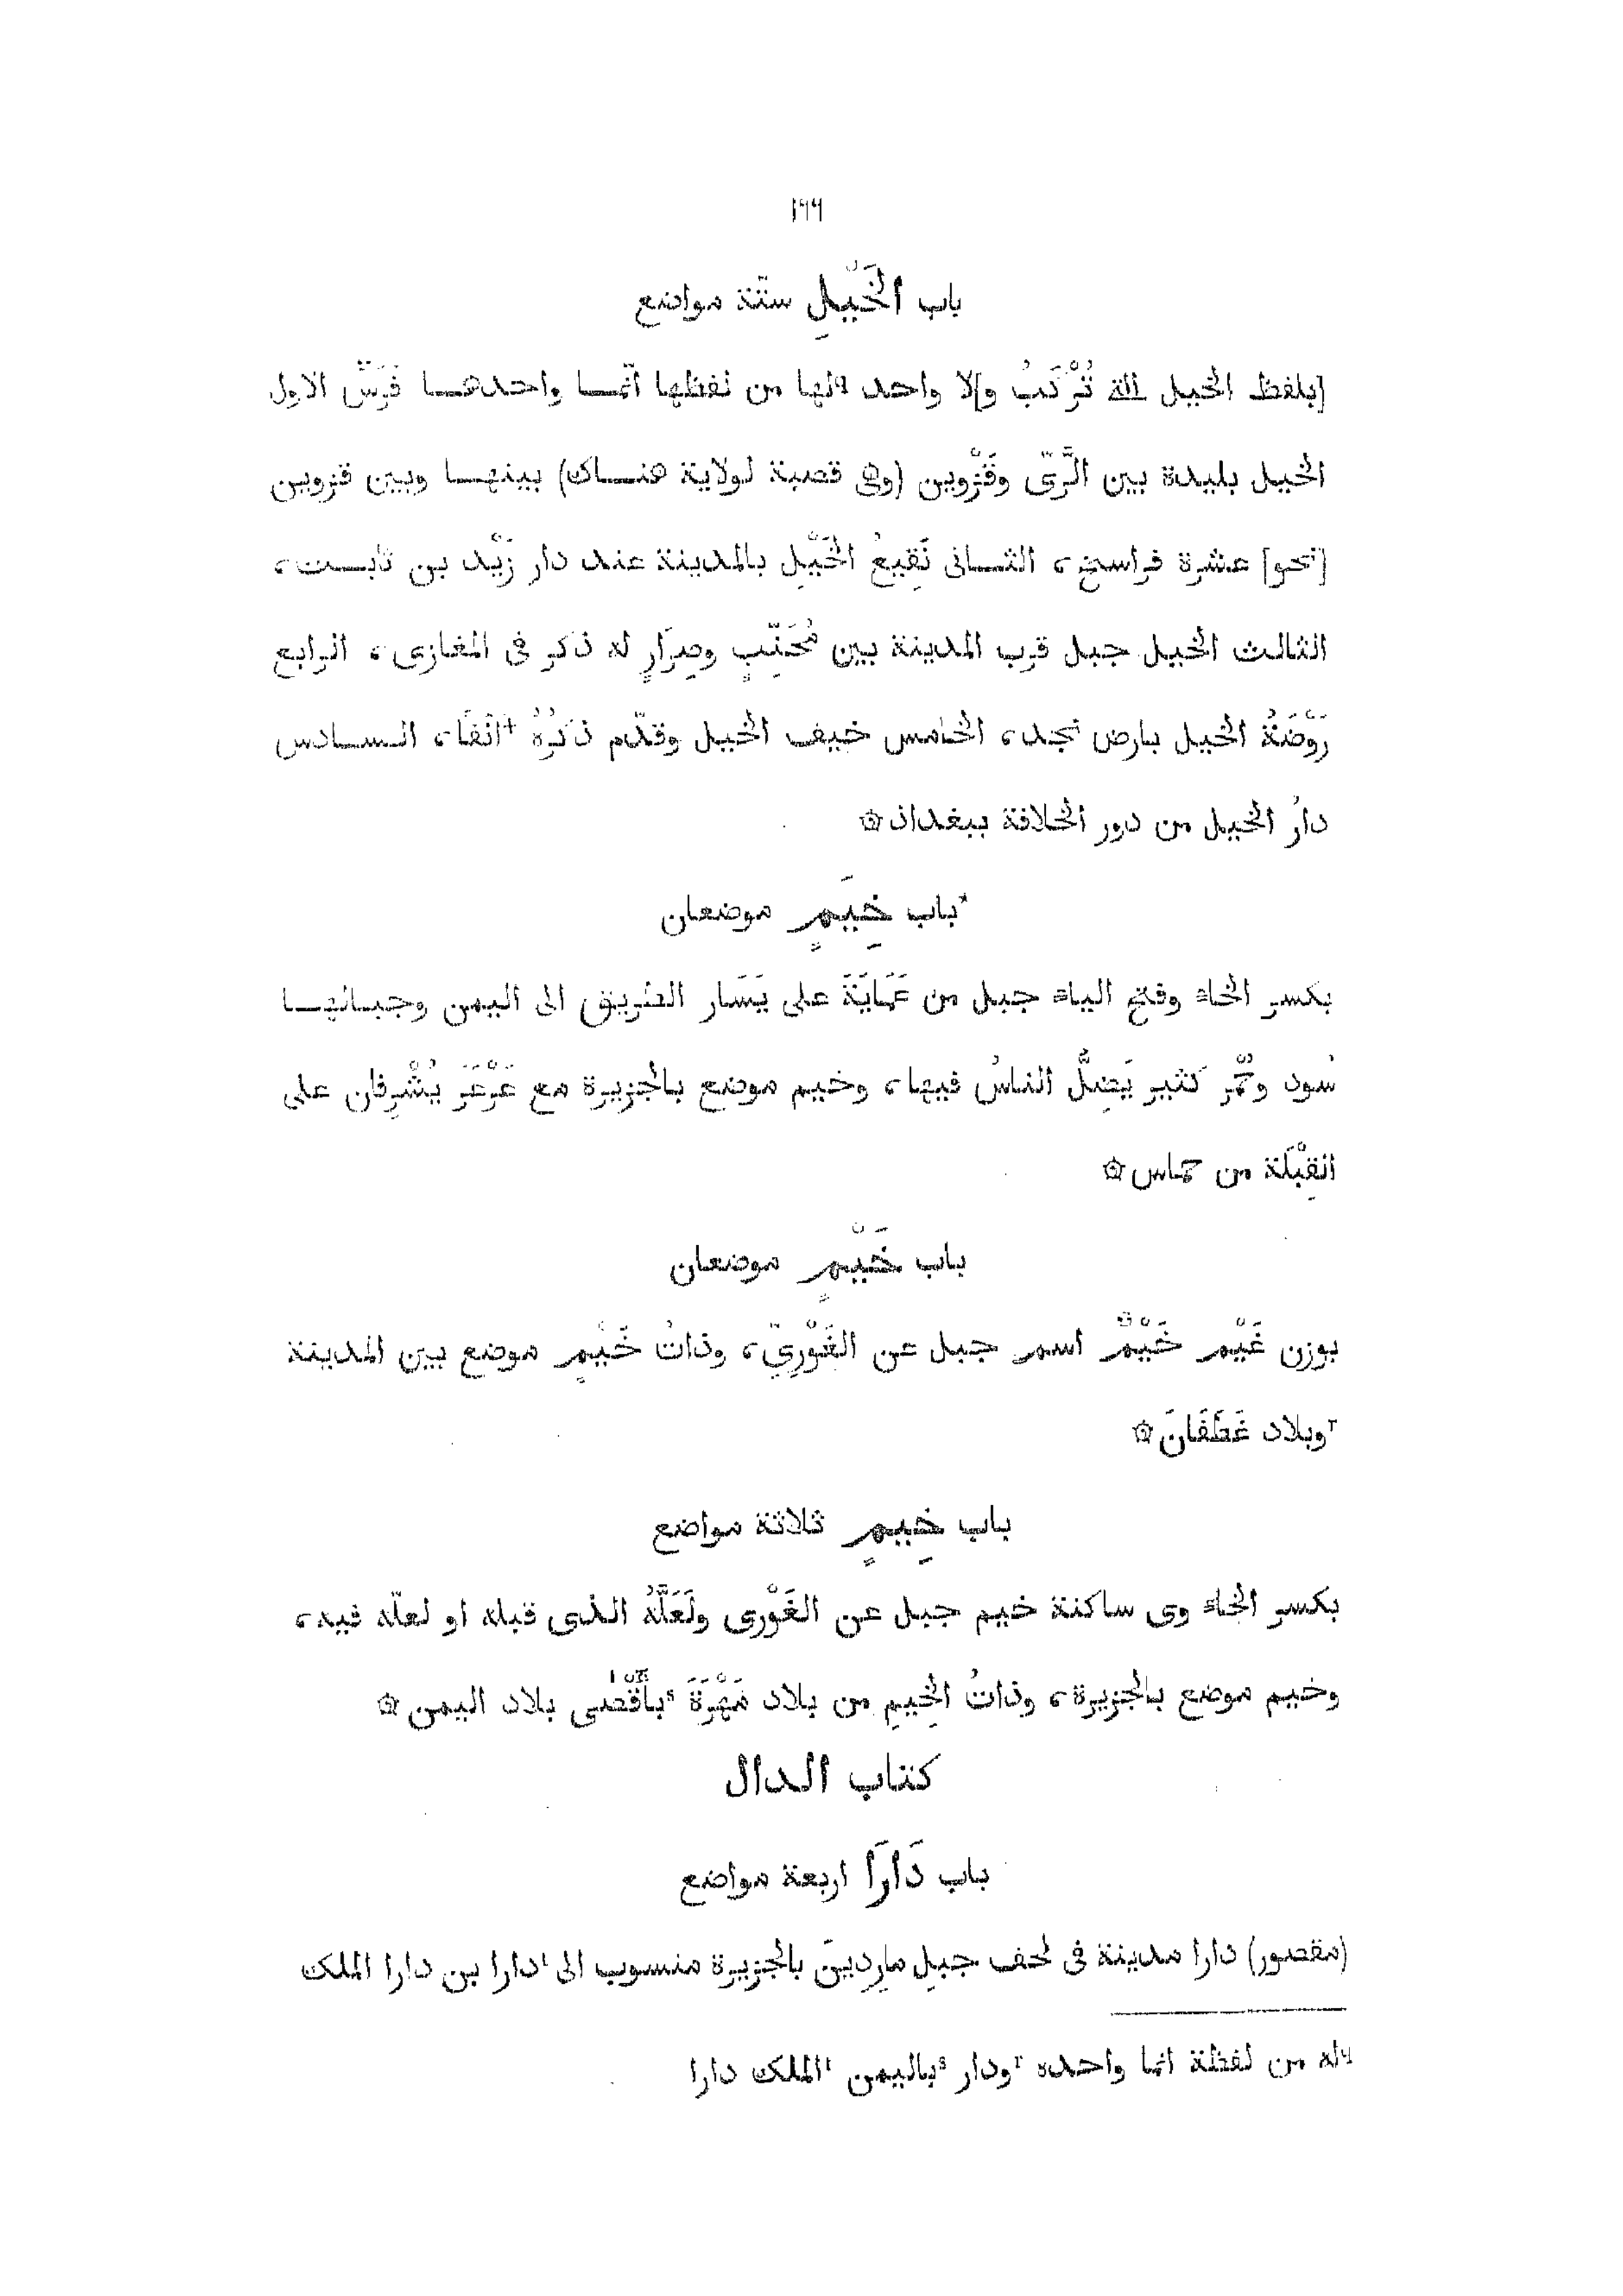 ١٦٦
باب الخَيْلِ ستّة مواضع
[بلفظ الخيل التى تُرْكَبُ و]لا واحد ٩لها من لفظها انّما واحدها فَرَسٌ الاول
الخيل بليدة بين الرَّىّ وقَزْوين (وهى قصبة لولاية هناك) بينها وبين قزوين
[نحو] عشرة فراسخ، الثانى نَقِيعُ الخَيْلِ بالمدينة عند دار زَيْد بن ثابت،
الثالث الخيل جبل قرب المدينة بين مُحَنِّبٍ وصِرَارٍ له ذكر فى المغازى، الرابع
رَوْضَةُ الخيل بارض نجد، الخامس خيف الخيل وقدّم ذَكْرُهُ +آنفًا، السادس
دارُ الخيل من دور الخلافة ببغداذ ۞
*باب خِيَمٍ موضعان
بكسر الخاء وفتح الياء جبل من عَمَايَةَ على يَسَار الطريق الى اليمن وجبالها
سُود وحُمْر كثير يَضِلُّ الناسُ فيها، وخيم موضع بالجزيرة مع عَرْعَرَ يُشْرِفان على
القِبْلَة من حماس ۞
باب خَيْمٍ موضعان
بوزن غَيْم خَيْمٌ اسم جبل عن الغَوْرِىّ، وذاتُ خَيْمٍ موضع بين المدينة
٣وبلاد غَطَفَانَ ۞
باب خِيمٍ ثلاثة مواضع
بكسر الخاء وى ساكنة خيم جبل عن الغَوْرى ولَعَلَّهُ الذى قبله او لعلّه فيه،
وخيم موضع بالجزيرة، وذاتُ الخِيمِ من بلاد مَهْرَةَ ٥بأَقْصٰى بلاد اليمن ۞
كتاب الدال
باب دَارَا اربعة مواضع
(مقصور) دارا مدينة فى لحف جبلِ مارِدِينَ بالجزيرة منسوب الى ١دارا بن دارا الملك
٩له من لفظة انما واحده ٣ودار ٥باليمن ١الملك دارا